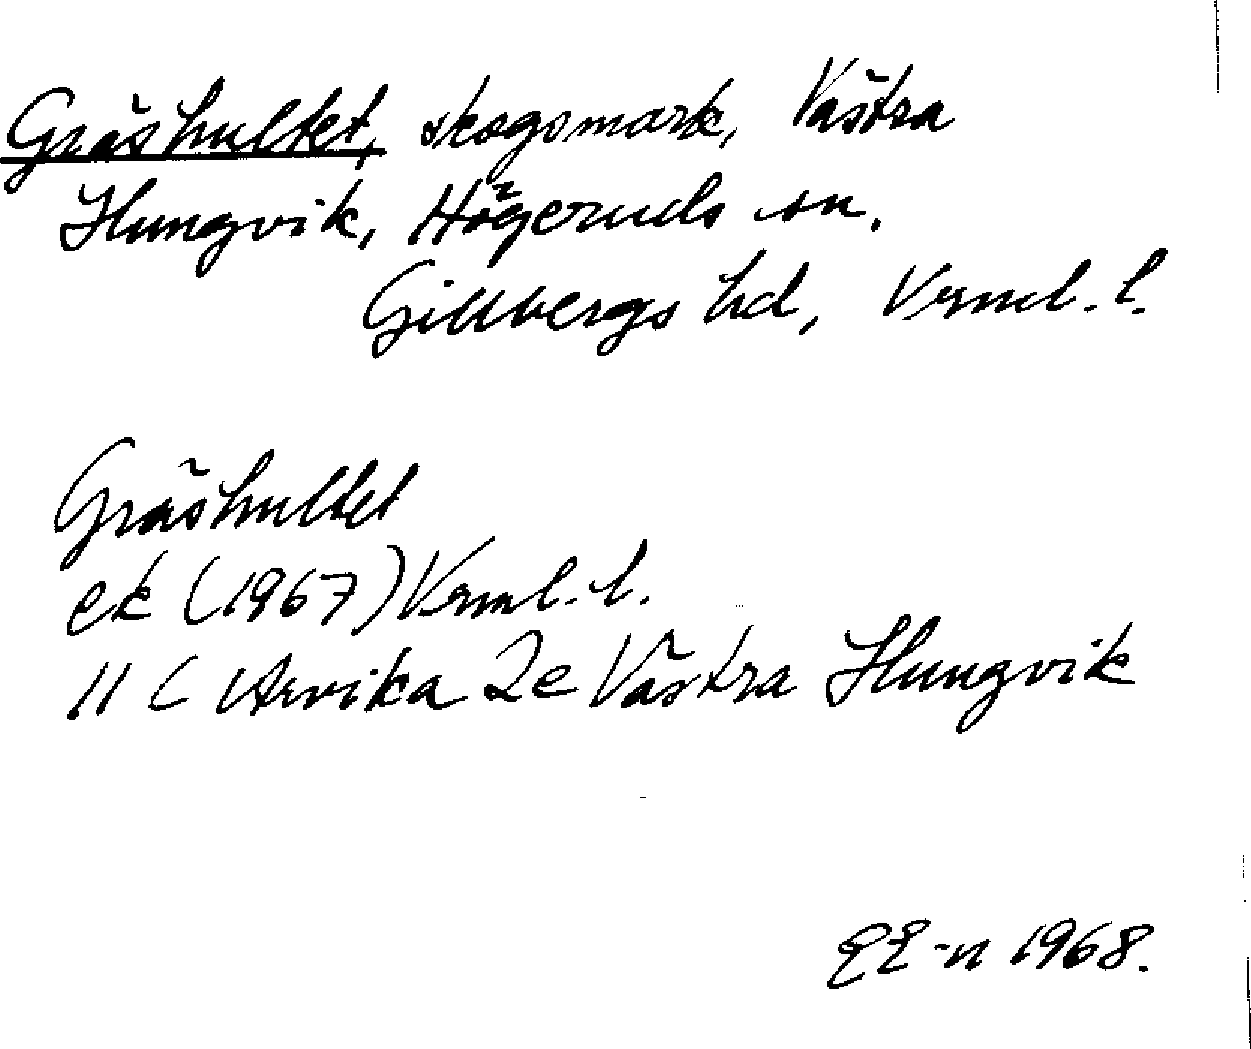 Gräshultet, skogsmark, Västra
Hungvik, Högeruds sn.
Gillbergs hd, Vrml. l.
Gräshultet
ek (1967) Vrml. l.
11 C Arvika 2e Västra Hungvik
EE-n 1968.